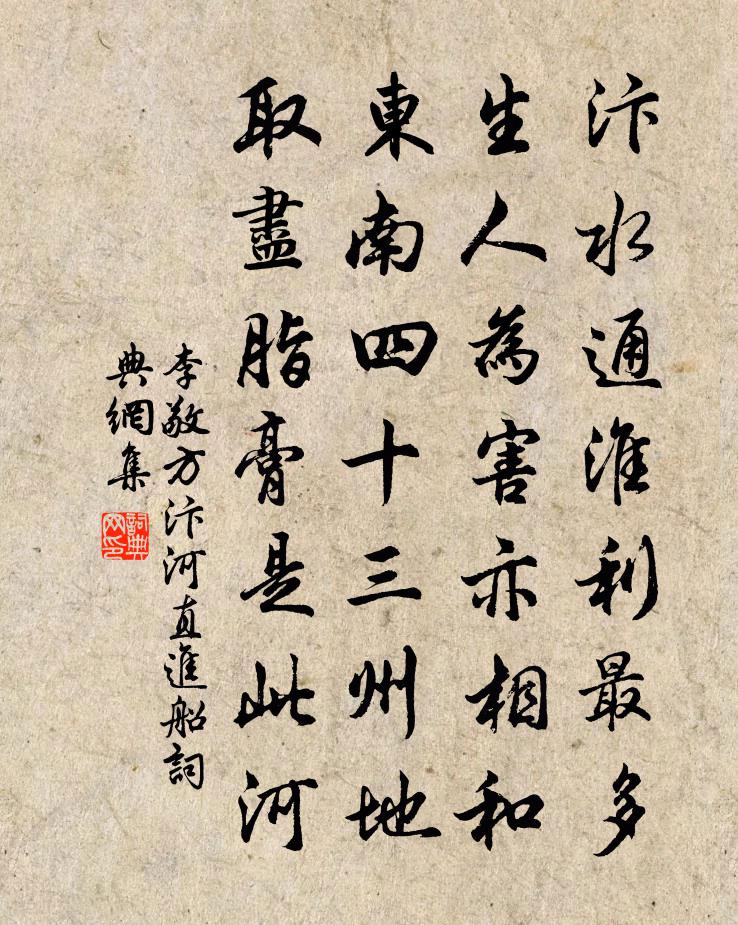 汴水通淮利最多
生人為害亦相和
東南四十三州地
取盡脂膏是此河
李敬方汴河直進船詞
典網集
詞典網印